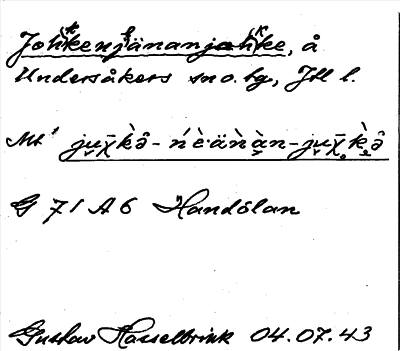 Johkenjänanjohke, å
Undersåkers sn o. hg, Jtl l.
Mt
G 71 A 6 Handölan
Gustav Hasselbrink 04.07.43